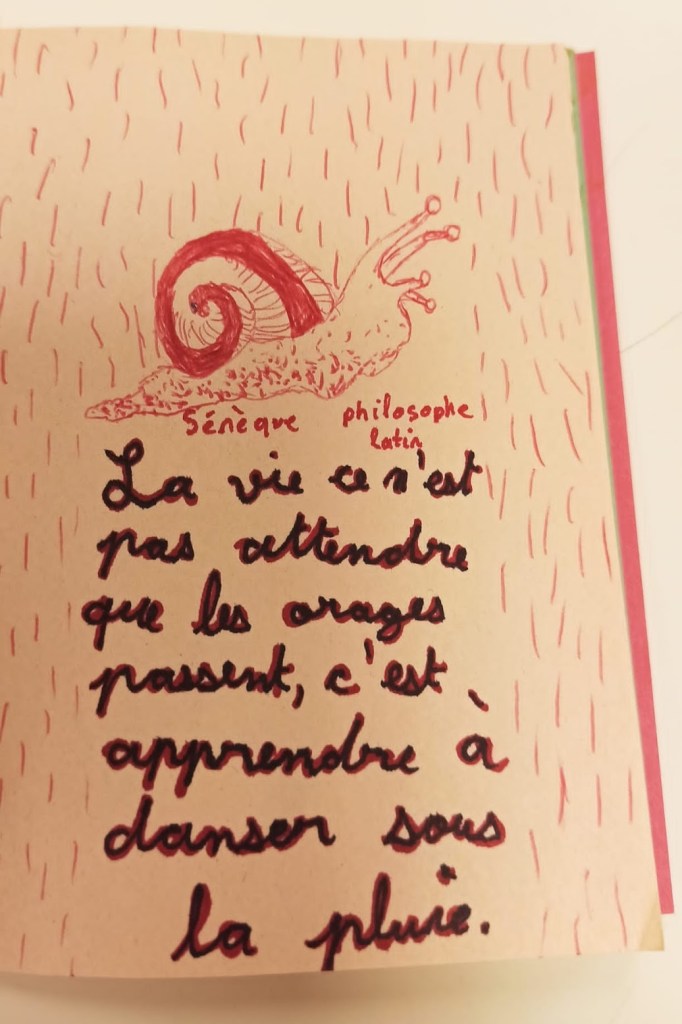 Sénèque philosophe
latin
La vie ce n'est
pas attendre
que les orages
passent, c'est
apprendre à
danser sous
la pluie.